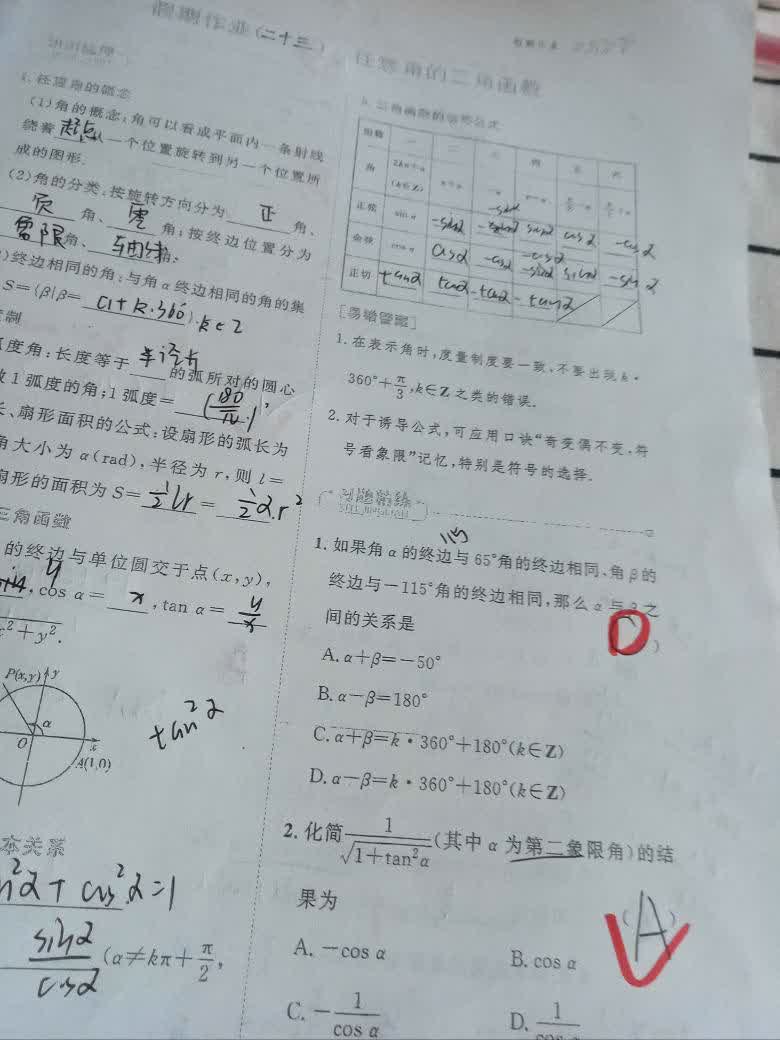 假期作业(二十三) 任意角的三角函数
假期作业
知识梳理
1. 任意角的概念
(1)角的概念:角可以看成平面内一条射线
绕着起点从一个位置旋转到另一个位置所
成的图形.
(2)角的分类:按旋转方向分为 正 角、
负 角、零 角;按终边位置分为
象限角、
)终边相同的角:与角α终边相同的角的集
S={β|β= α+k·360°},k∈Z
制
度角:长度等于半径长的弧所对的圆心
1弧度的角;1弧度=(180/π)°,
、扇形面积的公式:设扇形的弧长为
角大小为α(rad),半径为r,则l=
扇形的面积为S=1/2 lr=1/2 α.r²
三角函数
的终边与单位圆交于点(x,y),
y,cos α= x,tan α= y/x
x²+y².
P(x,y) y
α
O x
A(1,0)
tan²α
本关系
n²α+cos²α=1
sinα/cosα (α≠kπ+π/2,
5. 三角函数的诱导公式
组数 一 二 三 四 五 六
角 2kπ+α(k∈Z) π+α -α π-α π/2-α π/2+α
-sinα
正弦 sin α -sinα sinα cosα -cosα
余弦 cos α cosα -cosα -cosα -sinα sinα -sinα
正切 tanα tanα -tanα -tanα
[易错警醒]
1. 在表示角时,度量制度要一致,不要出现k·
360°+π/3,k∈Z之类的错误.
2. 对于诱导公式,可应用口诀“奇变偶不变,符
号看象限”记忆,特别是符号的选择.
习题精练
115
1. 如果角α的终边与65°角的终边相同,角β的
终边与-115°角的终边相同,那么α与β之
间的关系是 D )
A. α+β=-50°
B. α-β=180°
C. α+β=k·360°+180°(k∈Z)
D. α-β=k·360°+180°(k∈Z)
2. 化简1/√(1+tan²α)(其中α为第二象限角)的结
果为 (A)
A. -cos α B. cos α
C. -1/cos α D. 1/cos α